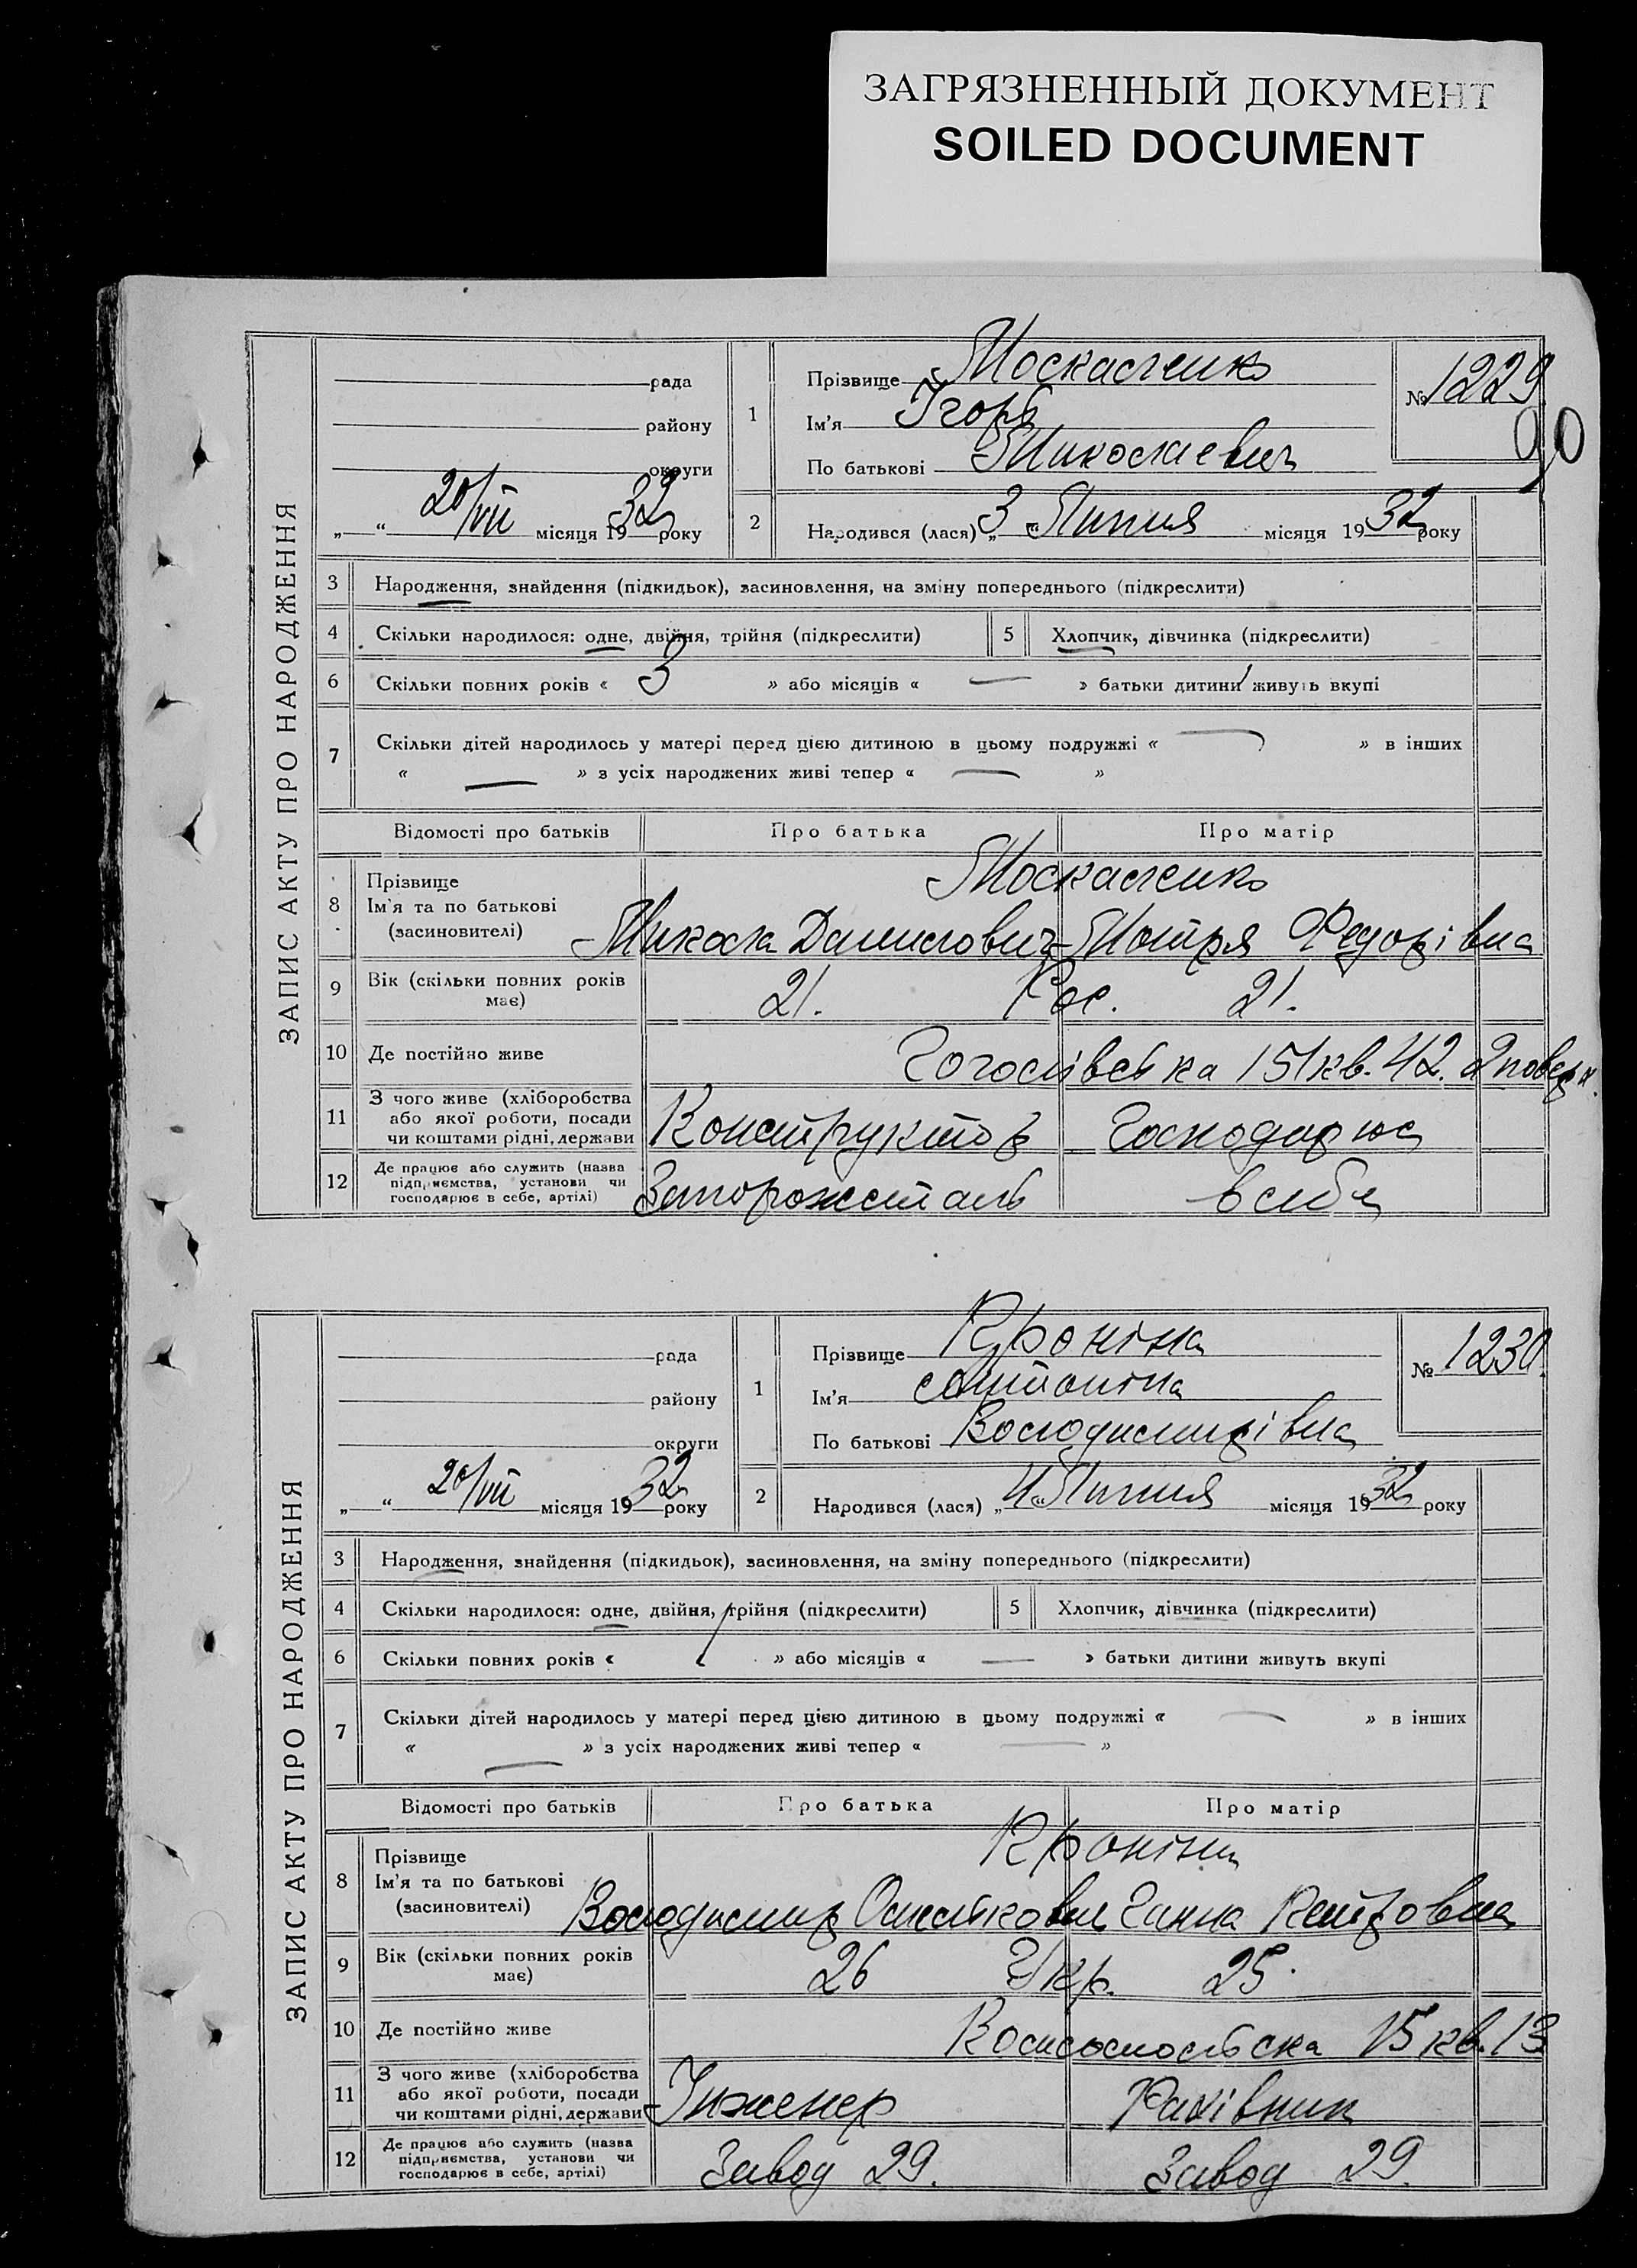 ЗАГРЯЗНЕННЫЙ ДОКУМЕНТ
SOILED DOCUMENT
ЗАПИС АКТУ ПРО НАРОДЖЕННЯ
рада
району
округи
„ “ 20/VII місяця 1932 року
1
Прізвище Москаленко
Ім'я Ігорь
По батькові Миколаевич
№ 1229
90
2 Народився (лася) „3“ Липня місяця 1932 року
3 Народження, знайдення (підкидьок), засиновлення, на зміну попереднього (підкреслити)
4 Скільки народилося: одне, двійня, трійня (підкреслити) 5 Хлопчик, дівчинка (підкреслити)
6 Скільки повних років « 3 » або місяців « — » батьки дитини живуть вкупі
7 Скільки дітей народилось у матері перед цією дитиною в цьому подружжі « — » в інших
« — » з усіх народжених живі тепер « — »
Відомості про батьків Про батька Про матір
8 Прізвище Москаленко
Ім'я та по батькові
(засиновителі) Микола Данилович Мотря Федорівна
9 Вік (скільки повних років має) 21. Рос. 21.
10 Де постійно живе Гоголівська 151 кв. 42. 2 поверх.
11 З чого живе (хліборобства
або якої роботи, посади
чи коштами рідні, держави Конструктор Господарює
12 Де працює або служить (назва
підприємства, установи чи
господарює в себе, артілі) Запорожсталь в себе
ЗАПИС АКТУ ПРО НАРОДЖЕННЯ
рада
району
округи
„ “ 20/VII місяця 1932 року
1
Прізвище Кроніна
Ім'я Антоніна
По батькові Володимирівна
№ 1230.
2 Народився (лася) „4“ Липня місяця 1932 року
3 Народження, знайдення (підкидьок), засиновлення, на зміну попереднього (підкреслити)
4 Скільки народилося: одне, двійня, трійня (підкреслити) 5 Хлопчик, дівчинка (підкреслити)
6 Скільки повних років « 1 » або місяців « — » батьки дитини живуть вкупі
7 Скільки дітей народилось у матері перед цією дитиною в цьому подружжі « — » в інших
« — » з усіх народжених живі тепер « — »
Відомості про батьків Про батька Про матір
8 Прізвище Кроніни
Ім'я та по батькові
(засиновителі) Володимир Ганна Петровна
9 Вік (скільки повних років має) 26 Укр. 25.
10 Де постійно живе Комсомольска 15 кв. 13
11 З чого живе (хліборобства
або якої роботи, посади
чи коштами рідні, держави Інженер Рахівник
12 Де працює або служить (назва
підприємства, установи чи
господарює в себе, артілі) Завод 29. Завод 29.